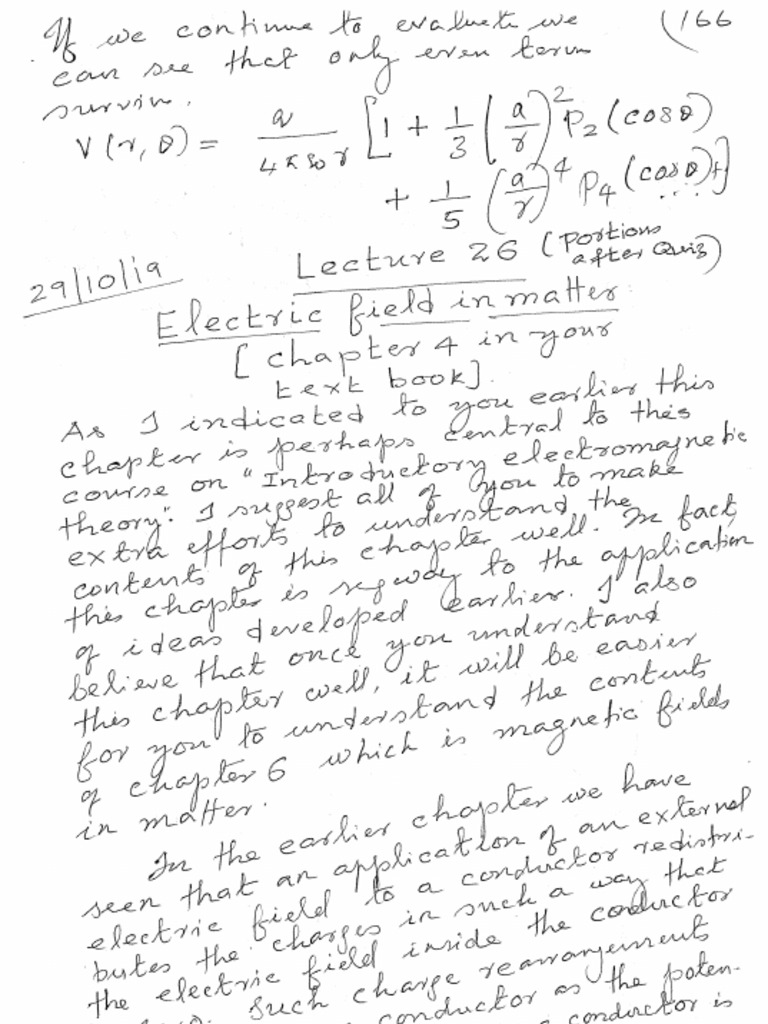 If we continue to evaluate we (166
can see that only even terms
survive.
V(r, θ) = q/4πε₀r [1 + 1/3 (a/r)² P₂(cosθ)
+ 1/5 (a/r)⁴ P₄(cosθ)+ ...]
29/10/19 Lecture 26 (Portions after Quiz)
Electric field in matter
[chapter 4 in your
text book].
As I indicated to you earlier this
chapter is perhaps central to this
course on "Introductory electromagnetic
theory". I suggest all of you to make
extra efforts to understand the
contents of this chapter well. In fact,
this chapter is segway to the application
of ideas developed earlier. I also
believe that once you understand
this chapter well, it will be easier
for you to understand the contents
of chapter 6 which is magnetic fields
in matter.
In the earlier chapter we have
seen that an application of an external
electric field to a conductor redistri-
butes the charges in such a way that
the electric field inside the conductor
Such charge rearrangements
conductor as the poten-
conductor is